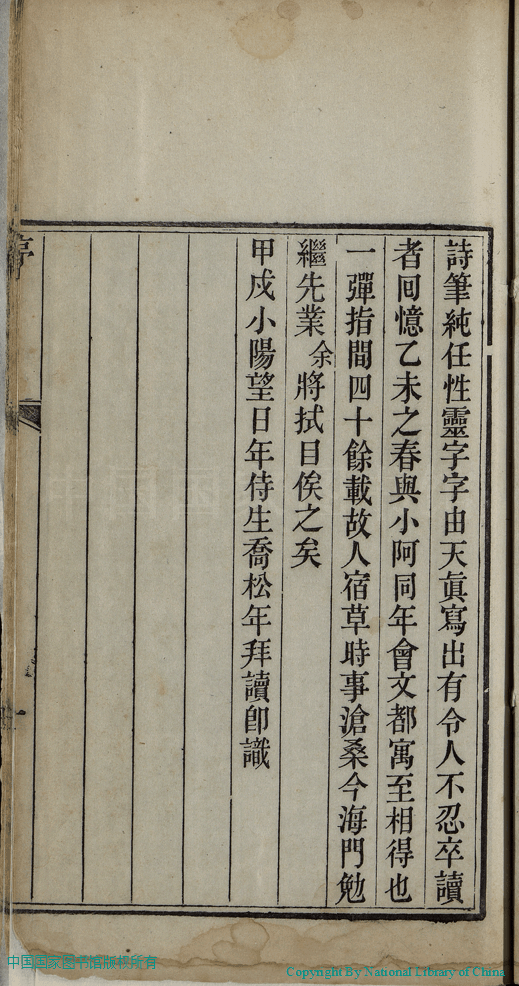 詩筆純任性靈字字由天眞寫出有令人不忍卒讀
者回憶乙未之春與小阿同年會文都寓至相得也
一彈指間四十餘載故人宿草時事滄桑今海門勉
繼先業余將拭目俟之矣
甲戍小陽望日年侍生喬松年拜讀卽識
亭
中国国家图书馆版权所有
Copyright By National Library of China